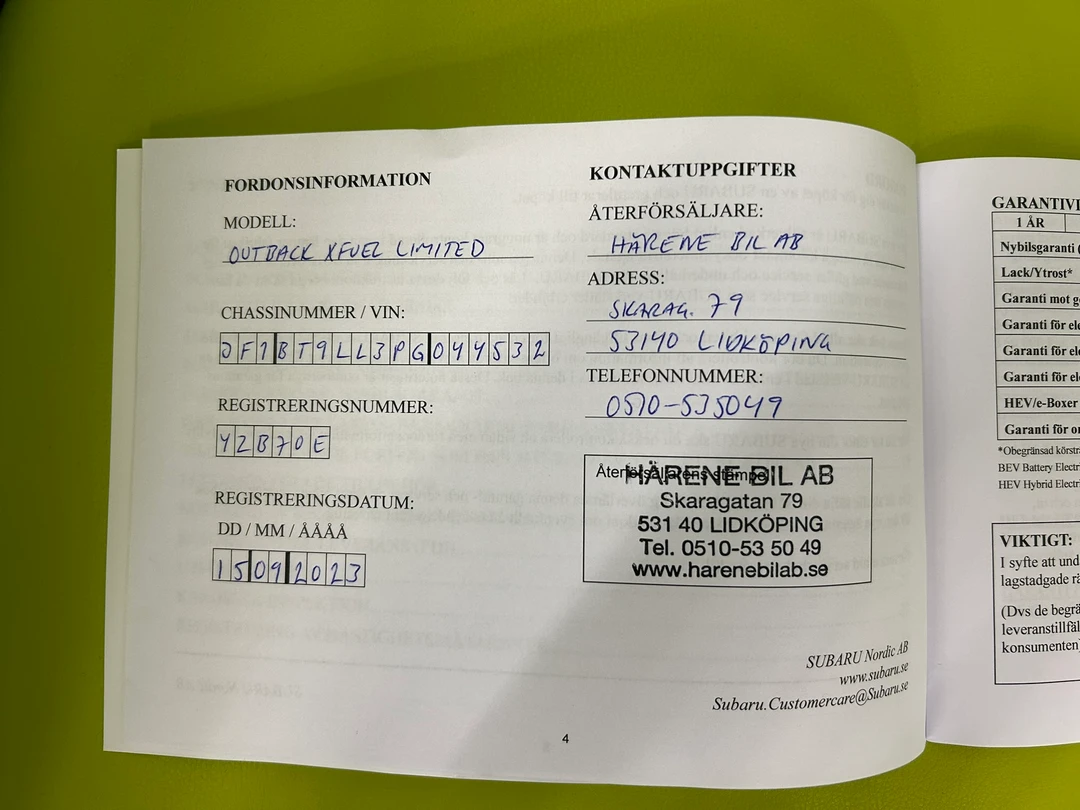 FORDONSINFORMATION
MODELL:
OUTBACK XFUEL LIMITED
CHASSINUMMER / VIN:
JF1BT9LL3PG044532
REGISTRERINGSNUMMER:
YZB70E
REGISTRERINGSDATUM:
DD / MM / ÅÅÅÅ
15092023
KONTAKTUPPGIFTER
ÅTERFÖRSÄLJARE:
HÄRENE BIL AB
ADRESS:
SKARAG. 79
53140 LIDKÖPING
TELEFONNUMMER:
0510-535049
Återförsäljarens stämpel
HÄRENE BIL AB
Skaragatan 79
531 40 LIDKÖPING
Tel. 0510-53 50 49
www.harenebilab.se
SUBARU Nordic AB
www.subaru.se
Subaru.Customercare@Subaru.se
4
GARANTIVI
1 ÅR
Nybilsgaranti (
Lack/Ytrost*
Garanti mot ge
Garanti för ele
Garanti för ele
Garanti för ele
HEV/e-Boxer
Garanti för or
*Obegränsad körstr
BEV Battery Electri
HEV Hybrid Electri
VIKTIGT:
I syfte att und
lagstadgade rä
(Dvs de begrä
leveranstillfäl
konsumenten)